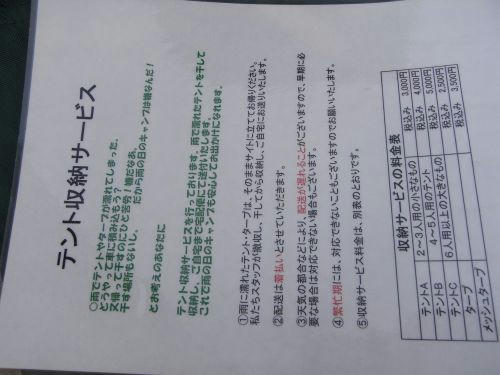 テント収納サービス
○雨でテントやタープが濡れてしまった。
どうやって車に積み込もう？
又帰って干すのにひと苦労！嫌だなあ、
干す場所もないし。　　だから雨の日のキャンプは嫌なんだ！
とお考えのあなたに
テント収納サービスを行っております。雨で濡れたテントを干して
収納し、ご自宅まで宅配便にて送付いたします。
これで雨の日のキャンプも安心してお出かけになれます。
①雨に濡れたテント・タープは、そのままサイトに立ててお帰りください。
私たちスタッフが撤収し、干してから収納し、ご自宅にお送りいたします。
②配送は着払いとさせていただきます。
③天気の都合などにより、配送が遅れることがございますので、早期に必
要な場合は対応できない場合もございます。
④繁忙期には、対応できないこともございますのでお願いいたします。
⑤収納サービス料金は、別表のとおりです。
収納サービスの料金表
テントA 2～3人用の小さなもの 税込み 3,000円
テントB 4～5人用のテント 税込み 4,000円
テントC 6人用以上の大きなもの 税込み 5,000円
タープ 税込み 2,500円
メッシュタープ 税込み 3,500円